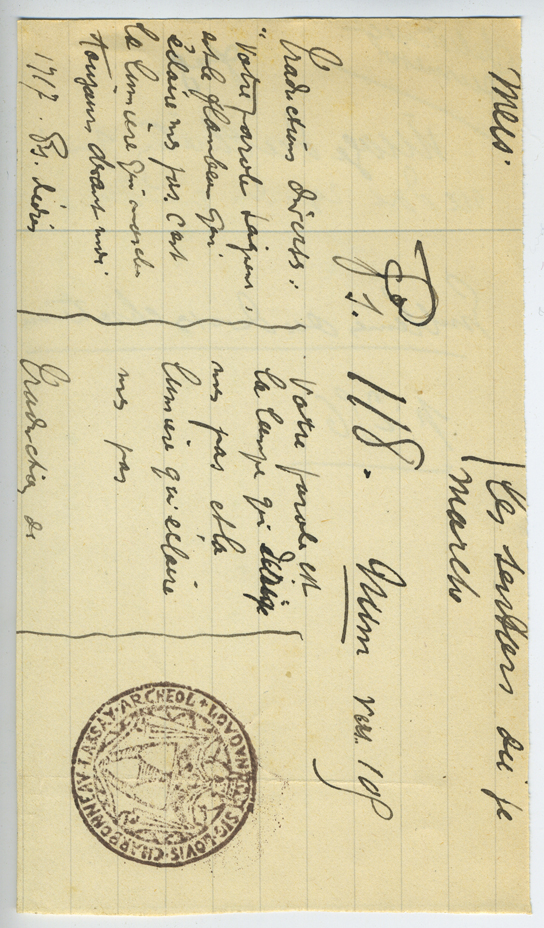 Mers.
les sentiers où je
marche
Ps. 118. Num ver. 105
Traductions diverses:
"Votre parole Seigneur,
est le flambeau qui
éclaire mes pas, c'est
la lumière qui marche
toujours devant moi
1717.
Votre parole est
la lampe qui dirige
mes pas et la
lumière qui éclaire
mes pas
Traduction de
SIG·LOVIS·CHARBONNEAV·LASSAY·ARCHEOL+LOVDVN